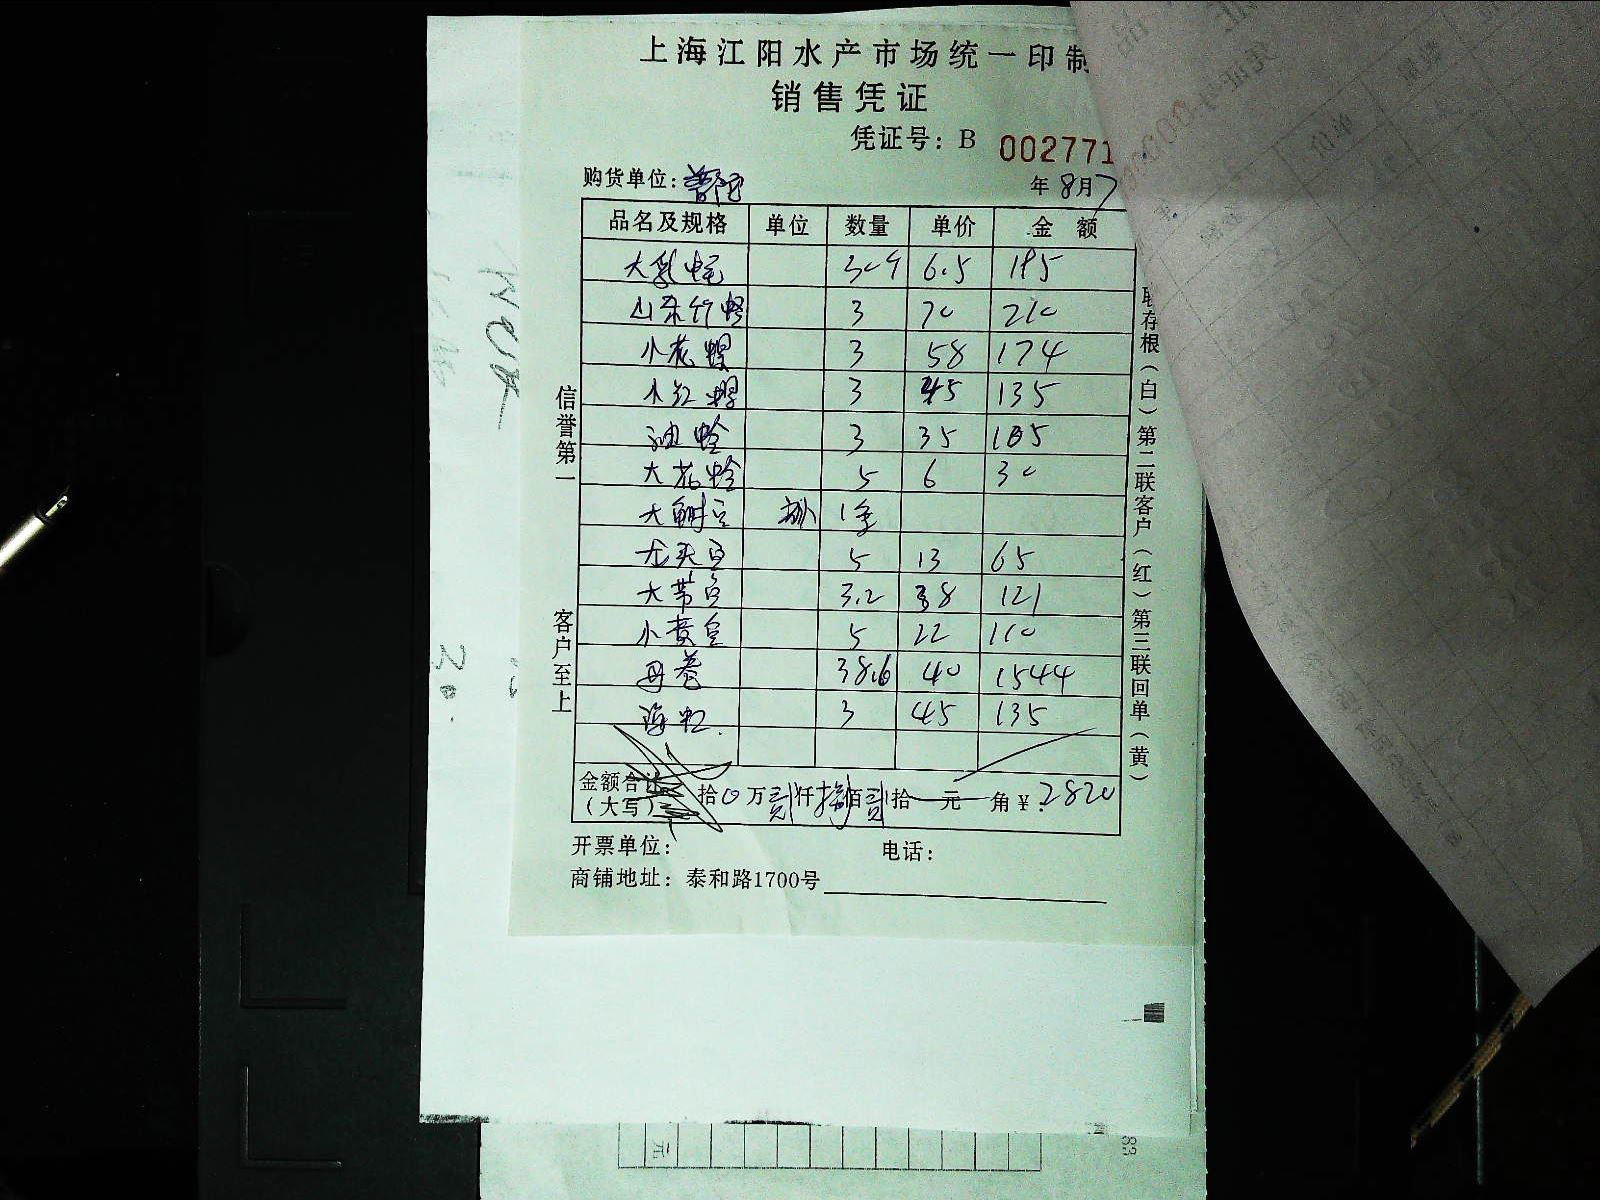 上海江阳水产市场统一印制
销售凭证
凭证号：B 002771
购货单位：普陀 年 8月7
品名及规格 单位 数量 单价 金 额
大乳蛏 6.5 195
山东竹蛏 3 70 210
小花螺 3 58 174
小红螺 3 45 135
油蛤 3 35 105
大花蛤 5 6 30
大
龙头鱼 5 13 65
大带鱼 3.2 38 121
小黄鱼 5 22 110
丹卷 38.6 40 1544
海虹 3 45 135
金额合计（大写） 拾0万贰仟捌佰贰拾 元 角¥：2820
开票单位： 电话：
商铺地址：泰和路1700号
信誉第一
客户至上
联存根（白）第二联客户（红）第三联回单（黄）